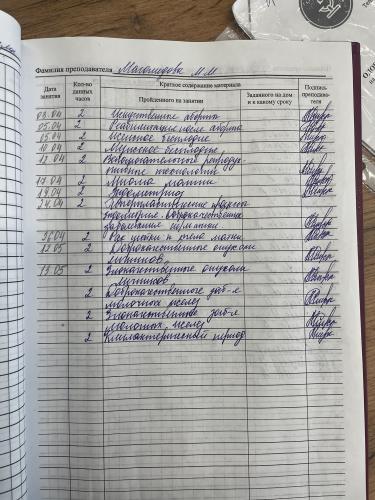 Фамилия преподавателя Магомедова М М
Дата занятия
Кол-во данных часов
Краткое содержание материала
Пройденного на занятии
Заданного на дом и к какому сроку
Подпись преподавателя
03.04 2 Искуственные аборты
05.04 2 Реабилитация после аборта
2 Женское бесплодие
10.04 2 Мужское бесплодие
12.04 2 Вспомогательные репродук
тивные технологии
17.04 2 Миома матки
19.04 2 Эндометриоз
24.04 2 Гиперпластические процессы
эндометрия. Доброкачественные
заболевания
26.04 2 Рак шейки и тела матки
12.05 2 Доброкачественные опухоли
яичников
13.05 2 Злокачественные опухоли
яичников
2 Доброкачественные заб-я
молочных желез
2 Злокачественные заб-я
молочных желез
2 Климактерический период